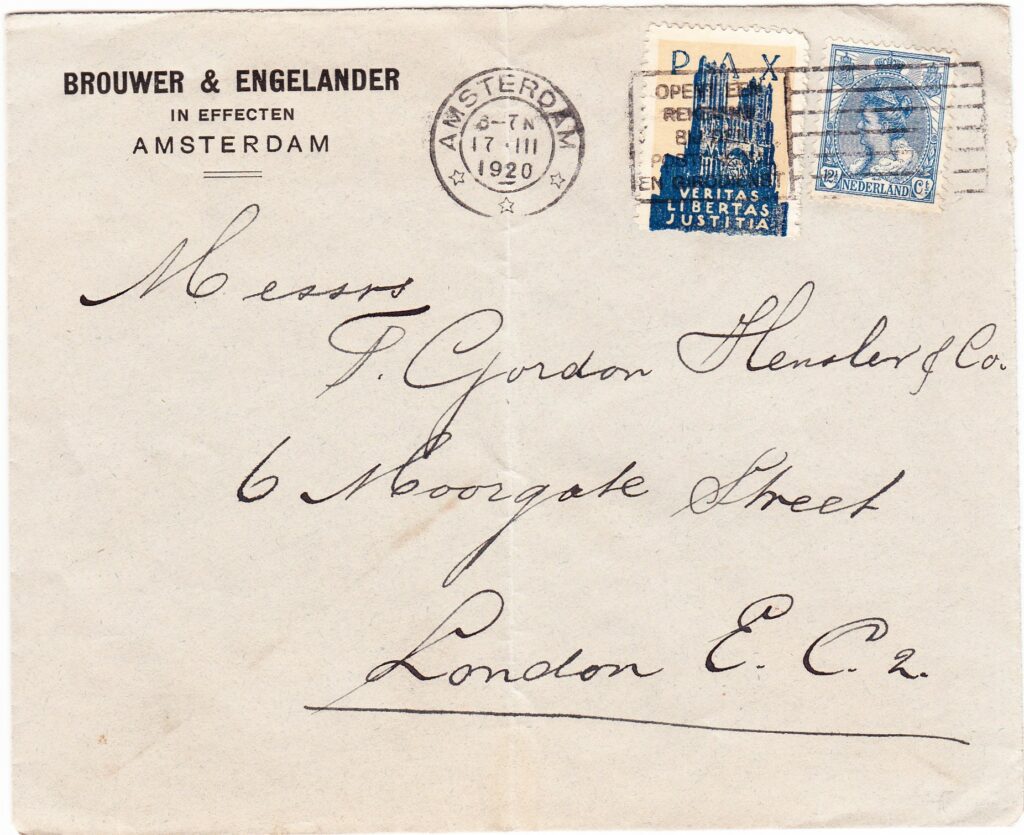 BROUWER & ENGELANDER
IN EFFECTEN
AMSTERDAM
AMSTERDAM
6-7N
17·III
1920
PAX
OPENT EEN
REKENING
BIJ DEN
EN GIRODIENST
VERITAS
LIBERTAS
JUSTITIA
12½ NEDERLAND Ct
Messrs
T. Gordon Hensler & Co.
6 Moorgate Street
London E.C.2.